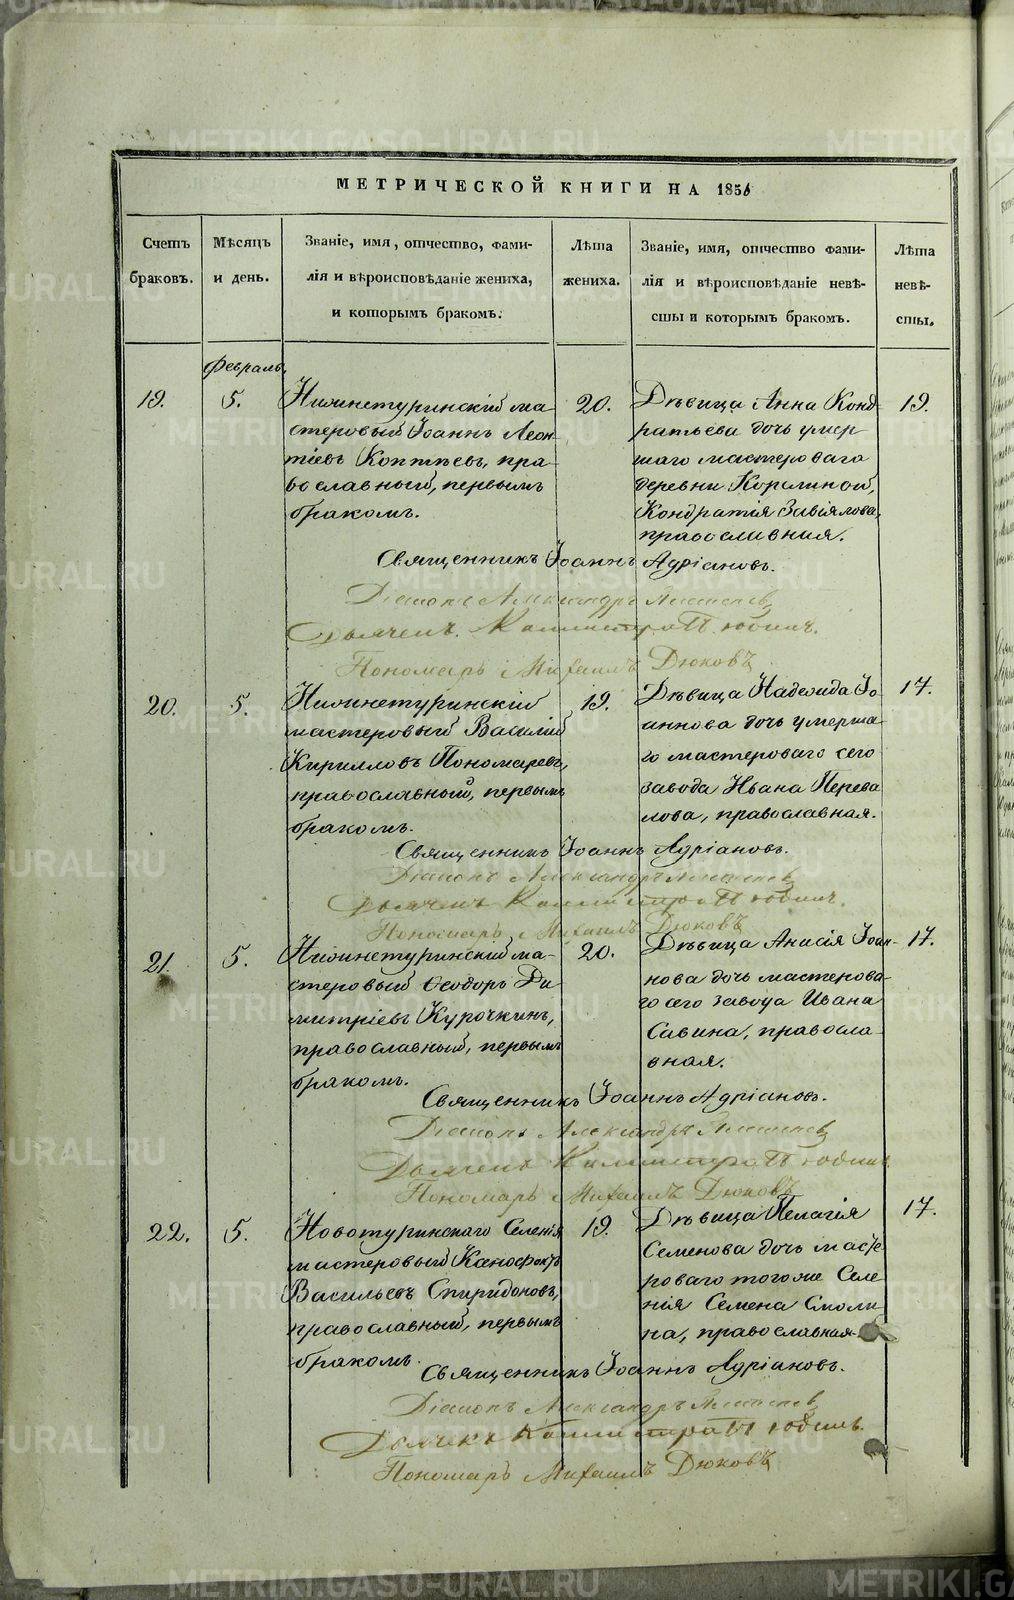 МЕТРИЧЕСКОЙ КНИГИ НА 1856
Счетъ браковъ.
Мѣсяцъ и день.
Званіе, имя, отчество, фами-
лія и вѣроисповѣданіе жениха,
и которымъ бракомъ.
Лѣта жениха.
Званіе, имя, отчество фами-
лія и вѣроисповѣданіе невѣ-
сты и которымъ бракомъ.
Лѣта невѣ-
сты.
Февраль.
19.
5.
Нижнетуринскій ма-
стеровый Іоаннъ Леон-
тіевъ Коптѣевъ, пра-
вославный, первымъ
бракомъ.
20.
Дѣвица Анна Конд-
ратьева дочь умер
шаго мастероваго
деревни
Кондратія Завіялова,
православная.
19.
Священникъ Іоаннъ Адріановъ.
Діаконъ Александръ
Дьячекъ
Пономарь Михаилъ Дюковъ
20.
5.
Нижнетуринскій
мастеровый Василій
Кирилловъ Пономаревъ,
православный, первымъ
бракомъ.
19.
Дѣвица Надежда Іо
аннова дочь умерша-
го мастероваго сего
завода Ивана Перева
лова, православная.
17.
Священникъ Іоаннъ Адріановъ.
Діаконъ Александръ
Дьячекъ
Пономарь Михаилъ Дюковъ
21.
5.
Нижнетуринскій ма-
стеровый Ѳеодоръ Ди
митріевъ Курочкинъ,
православный, первымъ
бракомъ.
20.
Дѣвица Анисія Іоан-
нова дочь мастерова-
го сего завода Ивана
Савина, правосла-
вная.
17.
Священникъ Іоаннъ Адріановъ.
Діаконъ Александръ
Дьячекъ
Пономарь Михаилъ Дюковъ
22.
5.
Новотуринскаго Селенія
мастеровый Ксенофонтъ
Васильевъ Спиридоновъ,
православный, первымъ
бракомъ.
19.
Дѣвица Пелагія
Семенова дочь масте
роваго того же Селе
нія Семена Смоли
на, православная.
17.
Священникъ Іоаннъ Адріановъ.
Діаконъ Александръ
Дьячекъ
Пономарь Михаилъ Дюковъ
METRIKI.GASO-URAL.RU